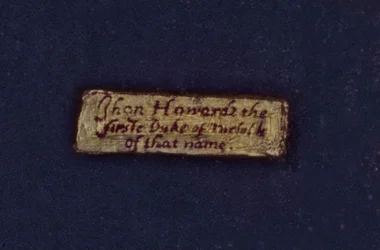 Jhon Howarde the
firste Duke of Norfolke
of that name.